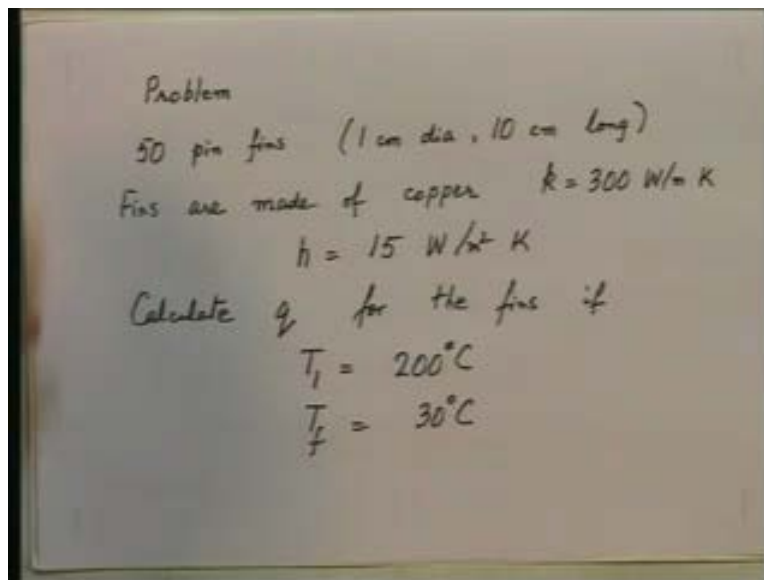 Problem
50 pin fins (1 cm dia, 10 cm long)
Fins are made of copper k = 300 W/m K
h = 15 W/m² K
Calculate q for the fins if
T₁ = 200°C
T_f = 30°C